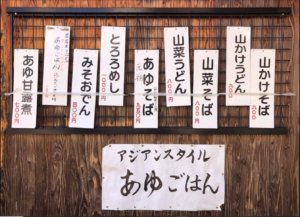 山かけそば
山かけうどん
山菜そば
八〇〇円
山菜うどん
八〇〇円
あゆそば
とろろめし
一〇〇〇円
みそおでん
あゆごはん
あゆ甘露煮
アジアンスタイル
あゆごはん